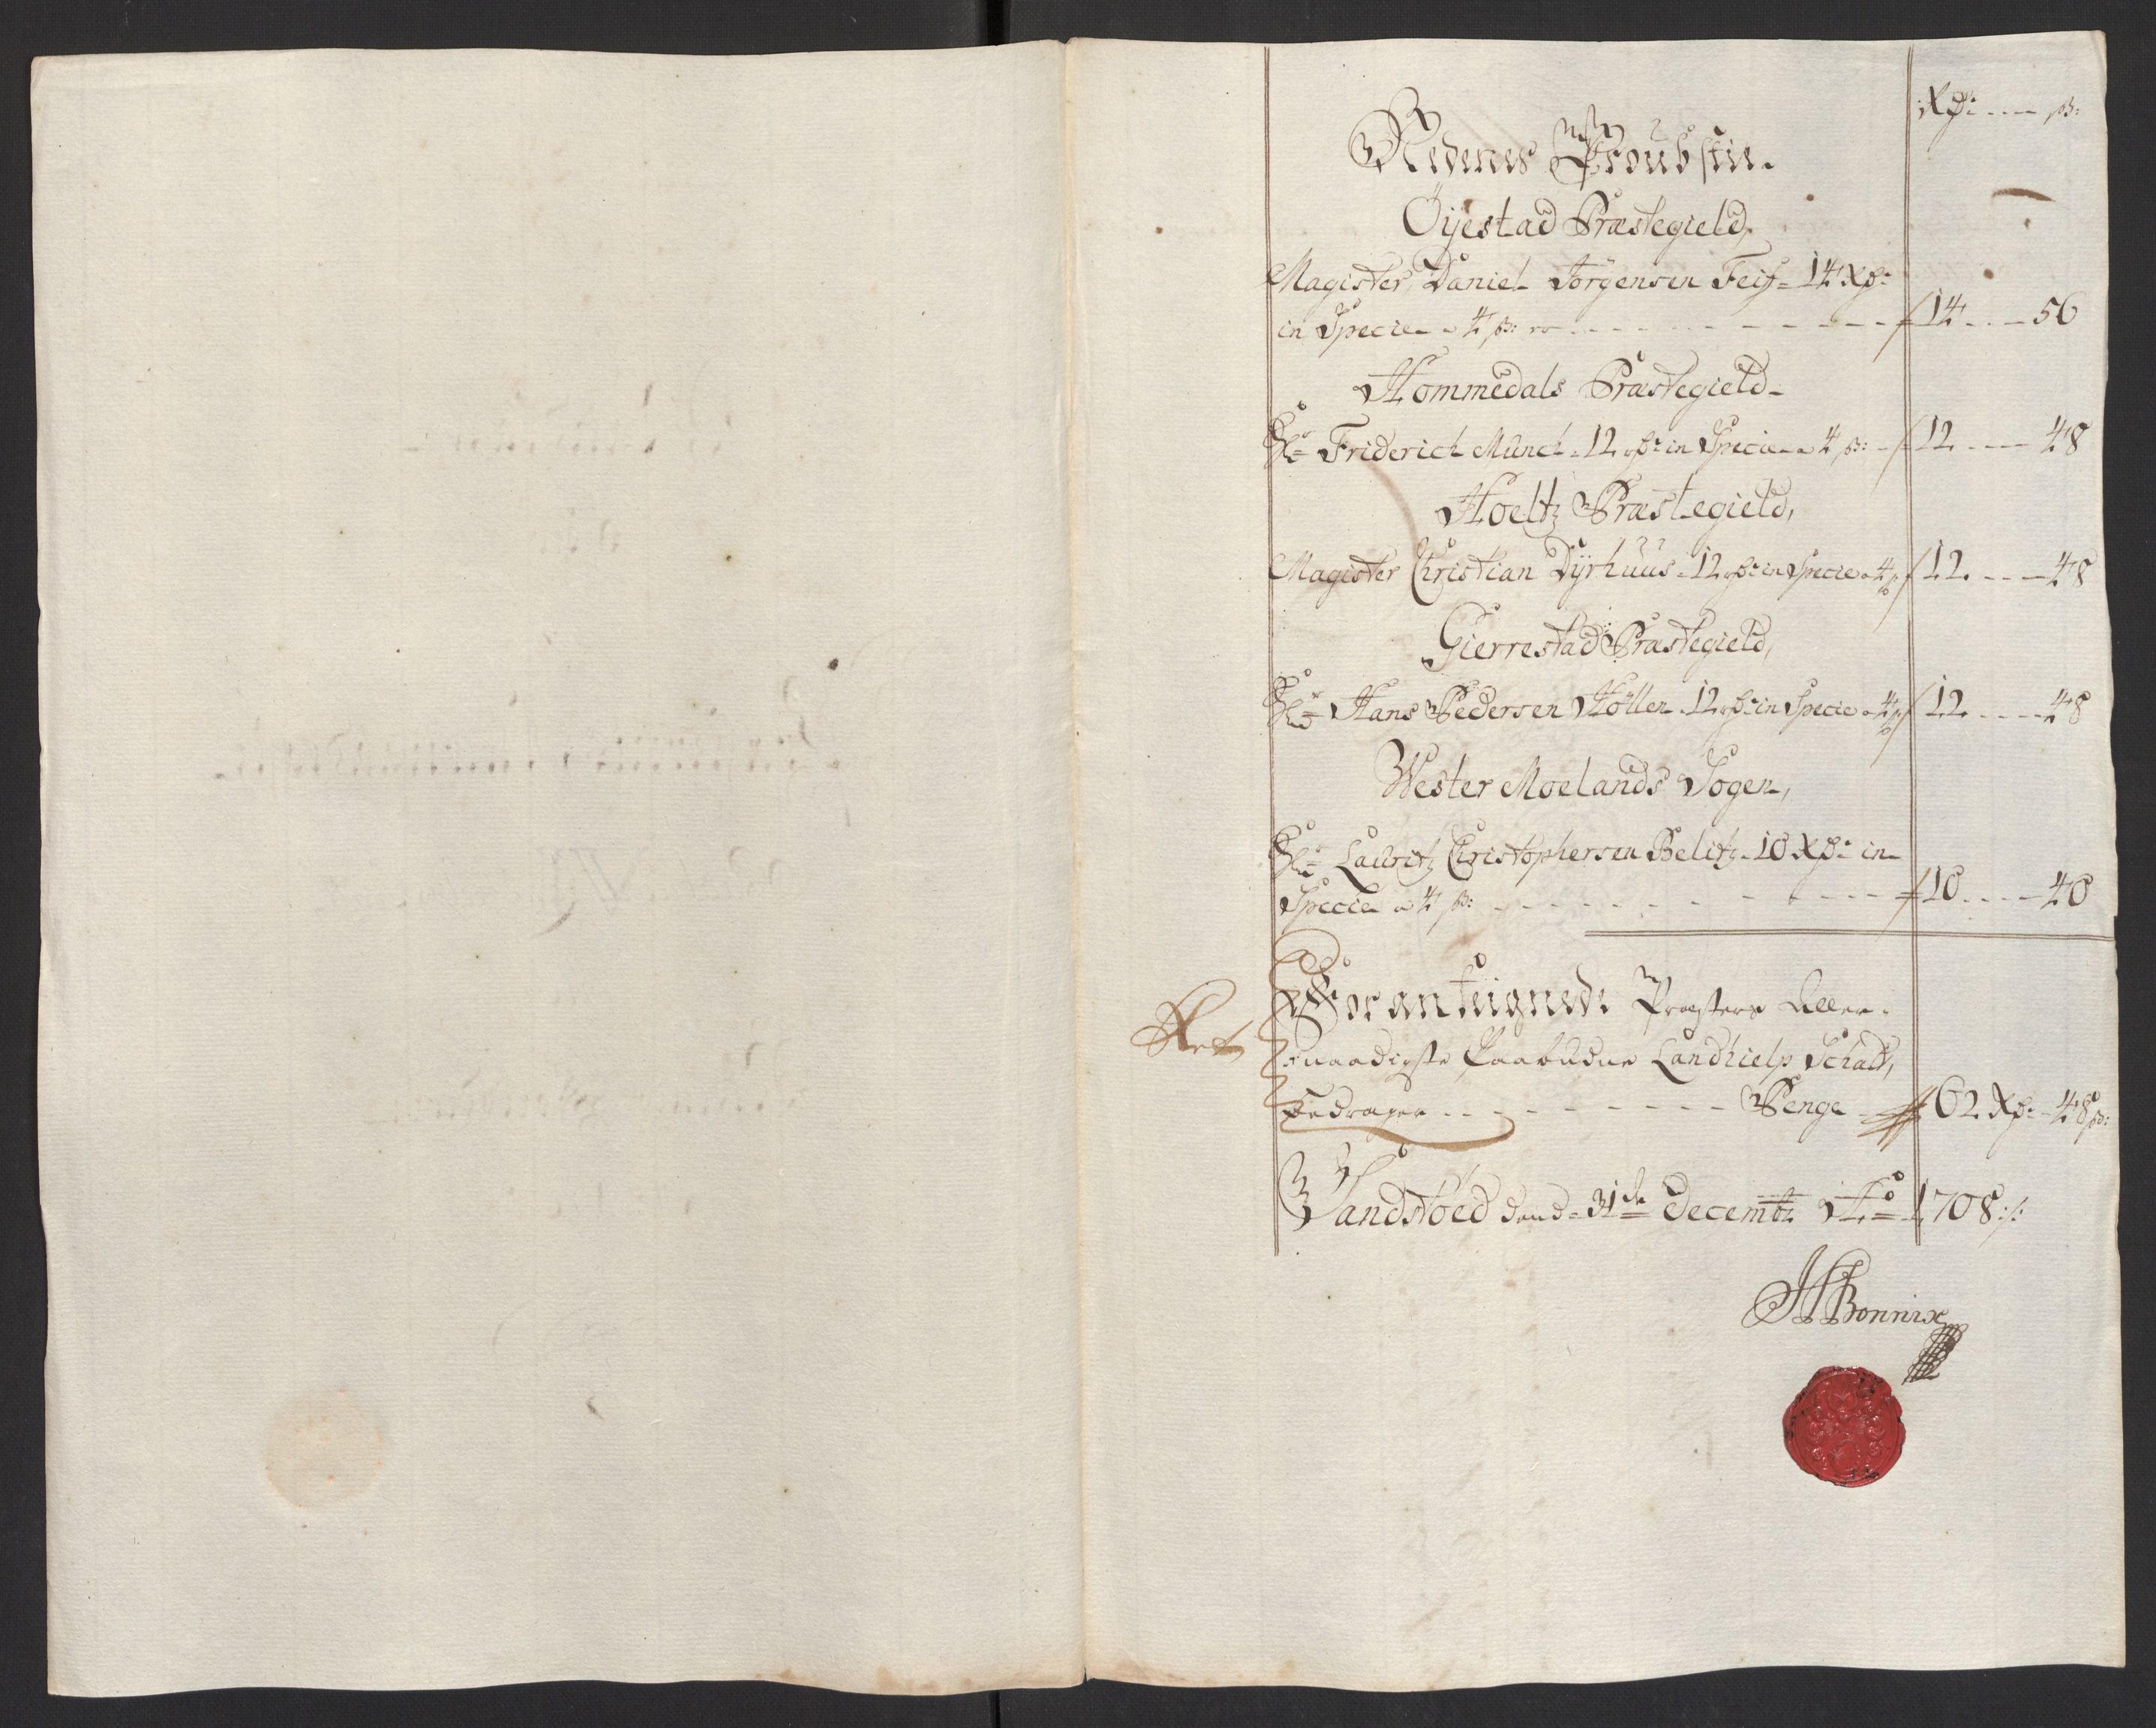 Rdr: ß:
Nedenes Proubstie.
Öÿestad Præstegield,
Magister Daniel Jörgensen Feis= 14 Rdr:
in Specie a 4 ß: 14 56
Hommedals Præstegield
Hr: Friderich Munch 12 rdr: in Specie a 4 ß: 12 48
Hoeltz Præstegield,
Magister Christian Dÿrhuus 12 rdr: in Specie a 4 ß 12 48
Gierrestad Præstegield,
Hr: Hans Pedersen Höllen 12 rdr: in Specie a 4 ß 12 48
Wester Moelands Sogen,
Hr: Lauritz Christophersen Belitz 10 Rdr: in
Specie a 4 ß: 10 40
Foranteignede Præsters Aller-
Ret naadigste Paabudne Landhielp Schatt,
Bedrager Penge 62 Rdr: 48 ß:
Sandstöed dend 31te Decembr Ao 1708
Bonnix